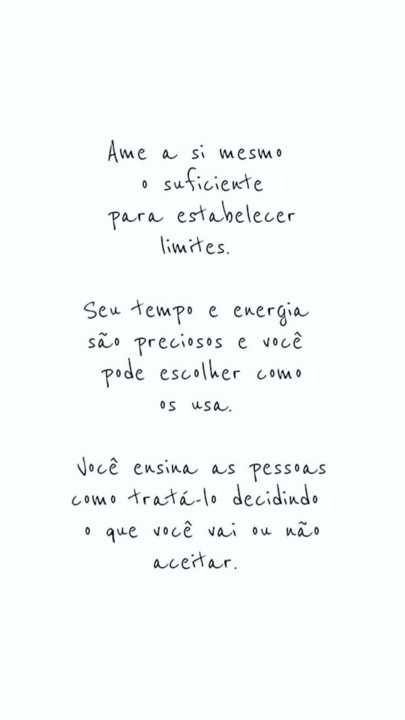 Ame a si mesmo
o suficiente
para estabelecer
limites.
Seu tempo e energia
são preciosos e você
pode escolher como
os usa.
Você ensina as pessoas
como tratá-lo decidindo
o que você vai ou não
aceitar.